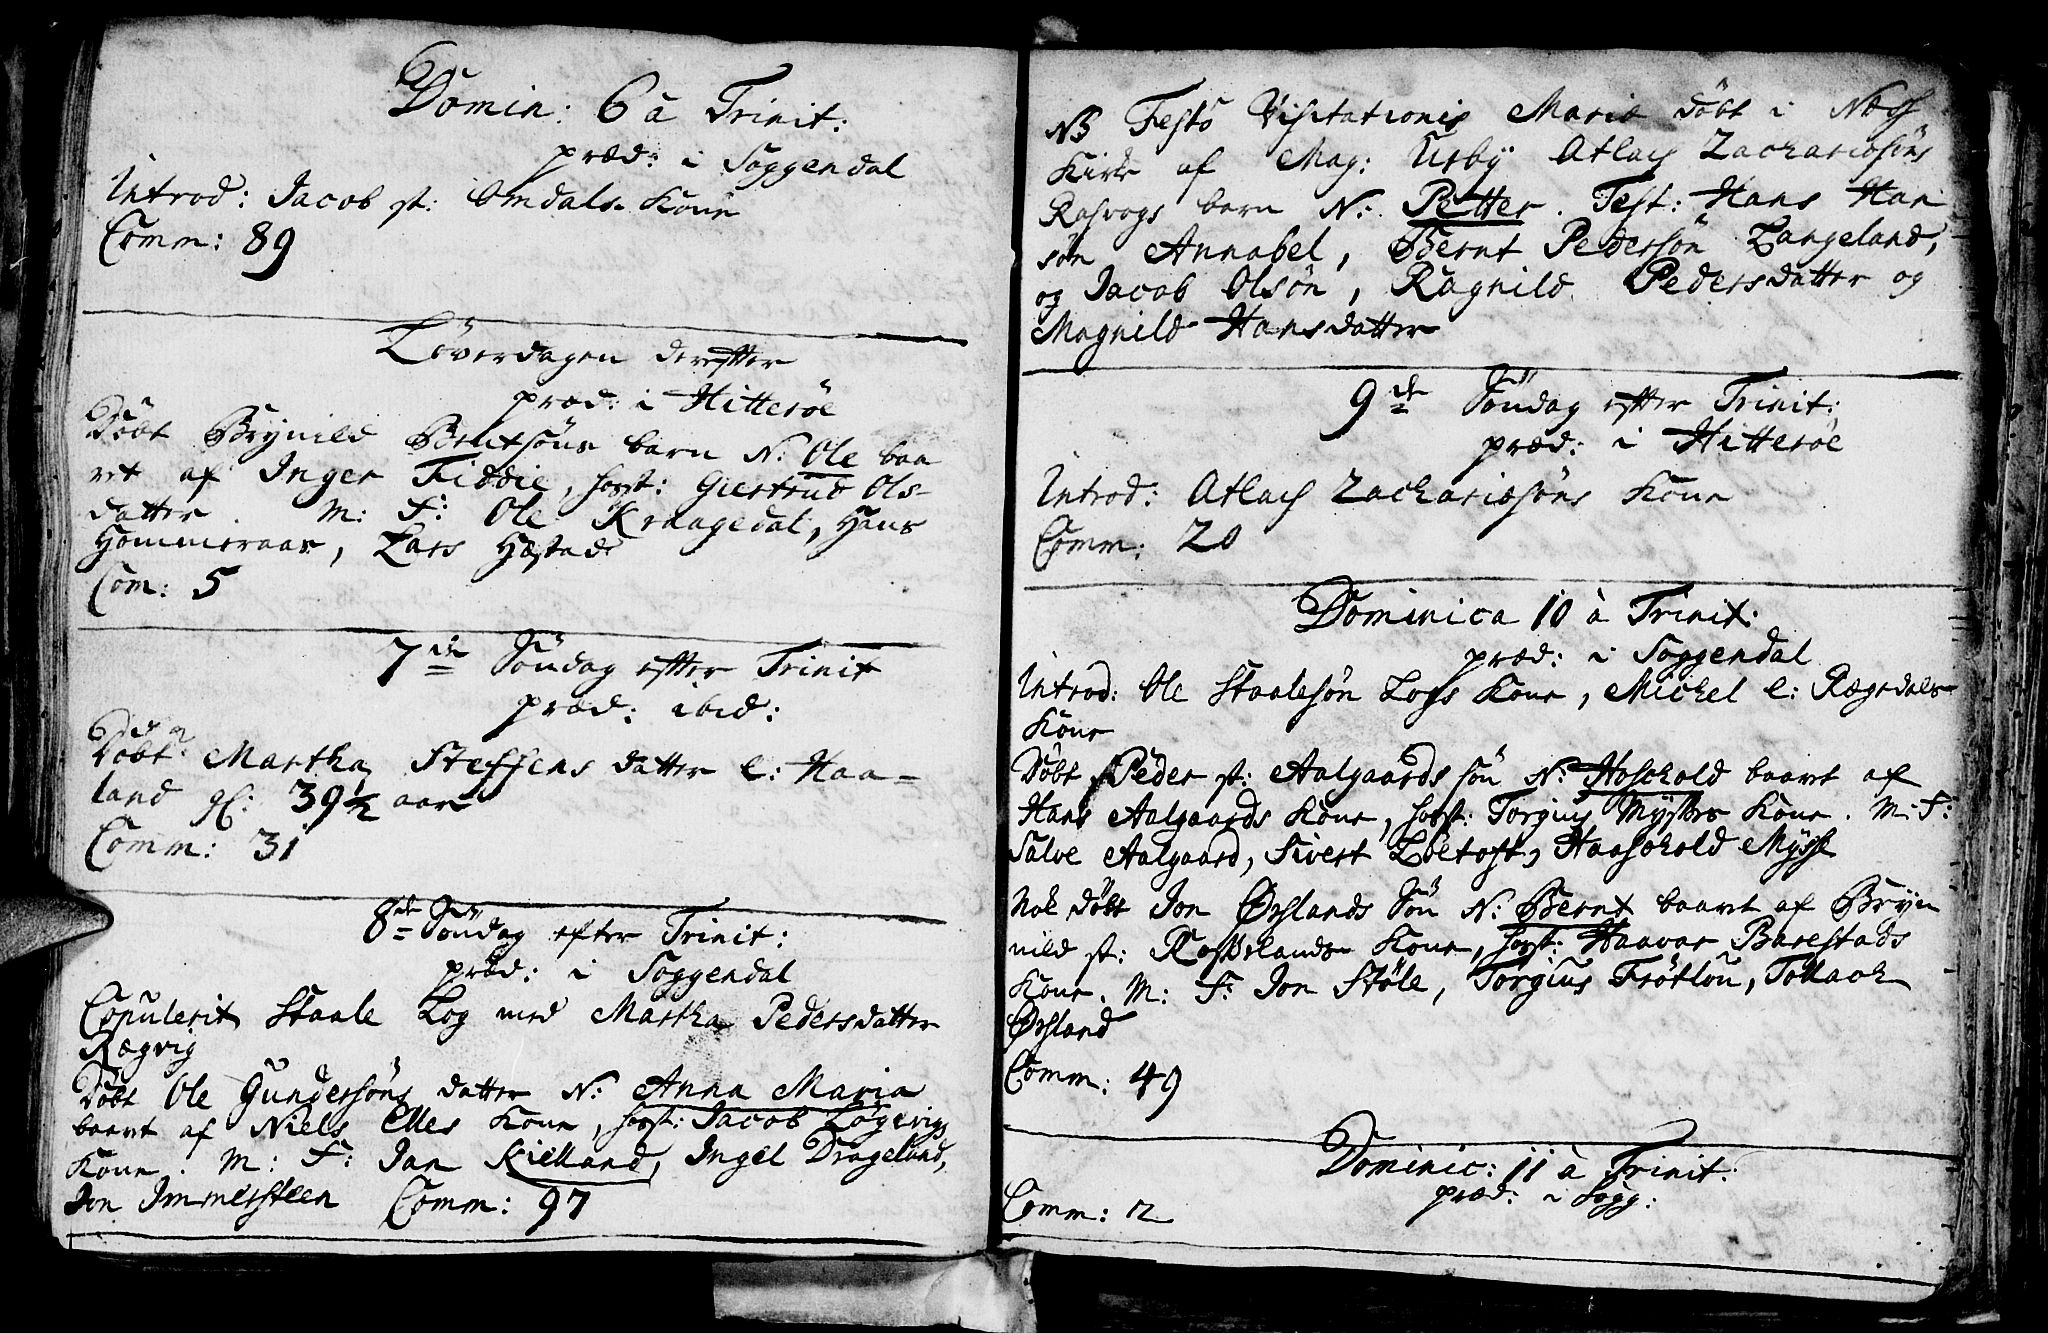 Domin: 6 à Trinit:
præd: i Soggendal
Introd: Jacob st: Omdals Kone
Comm: 89
Löverdagen derefter
præd: i Hitterøe
Döbt Brynild Bentsöns barn N: Ole baa
ret af Inger Fiddie, host: Giertrud Ols-
datter. M: F: Ole Kraagedal, Hans
Hammeraas, Lars Hæstad
Com: 5
7de Söndag efter Trinit
præd: ibid:
Martha Steffens datter e: Haa-
land gl: 39½ aar
Comm: 31
8de Söndag efter Trinit:
præd: i Soggendal
Copulerit Staale Log med Martha Pedersdatter
Rægvig
Döbt Ole Gundersöns datter N: Anna Maria
baaret af Niels Elles Kone, host: Jacob Løgevigs
Kone. M: F: Jan Kielland, Ingel Drageland,
Jon Immersteen Comm: 97
NB Festo Visitationis Mariæ döbt i Næss
Kirke af Mag: Urbÿ Atlach Zachariæsöns
Rasvogs barn N: Petter. Test: Hans Han
sön Annabel, Bernt Pedersön Langeland,
og Jacob Olsön, Ragnild Pedersdatter og
Magnild Hansdatter
9de Söndag efter Trinit:
præd: i Hitterøe
Introd: Atlach Zachariæsöns Kone
Comm: 20
Dominica 10 à Trinit:
præd: i Soggendal
Introd: Ole Staalesön Logs Kone, Michel e: Rægedals
Kone
Döbt Peder st: Aalgaards sön N: Hoskold baaret af
Hans Aalgaards Kone, host: Torgius Mÿsses Kone. M: F:
Salve Aalgaard, Sivert Löetoft, Haaskold Mÿsse
Nok döbt Jon Ørslands Sön N: Bernt baaret af Bryn
nild st: Rosslands Kone, host: Haavar Barestads
Kone. M: F: Jon Stöle, Torgius Frötlou, Tollach
Ørsland
Comm: 49
Dominic: 11 à Trinit:
præd: i Sogg:
Comm: 12